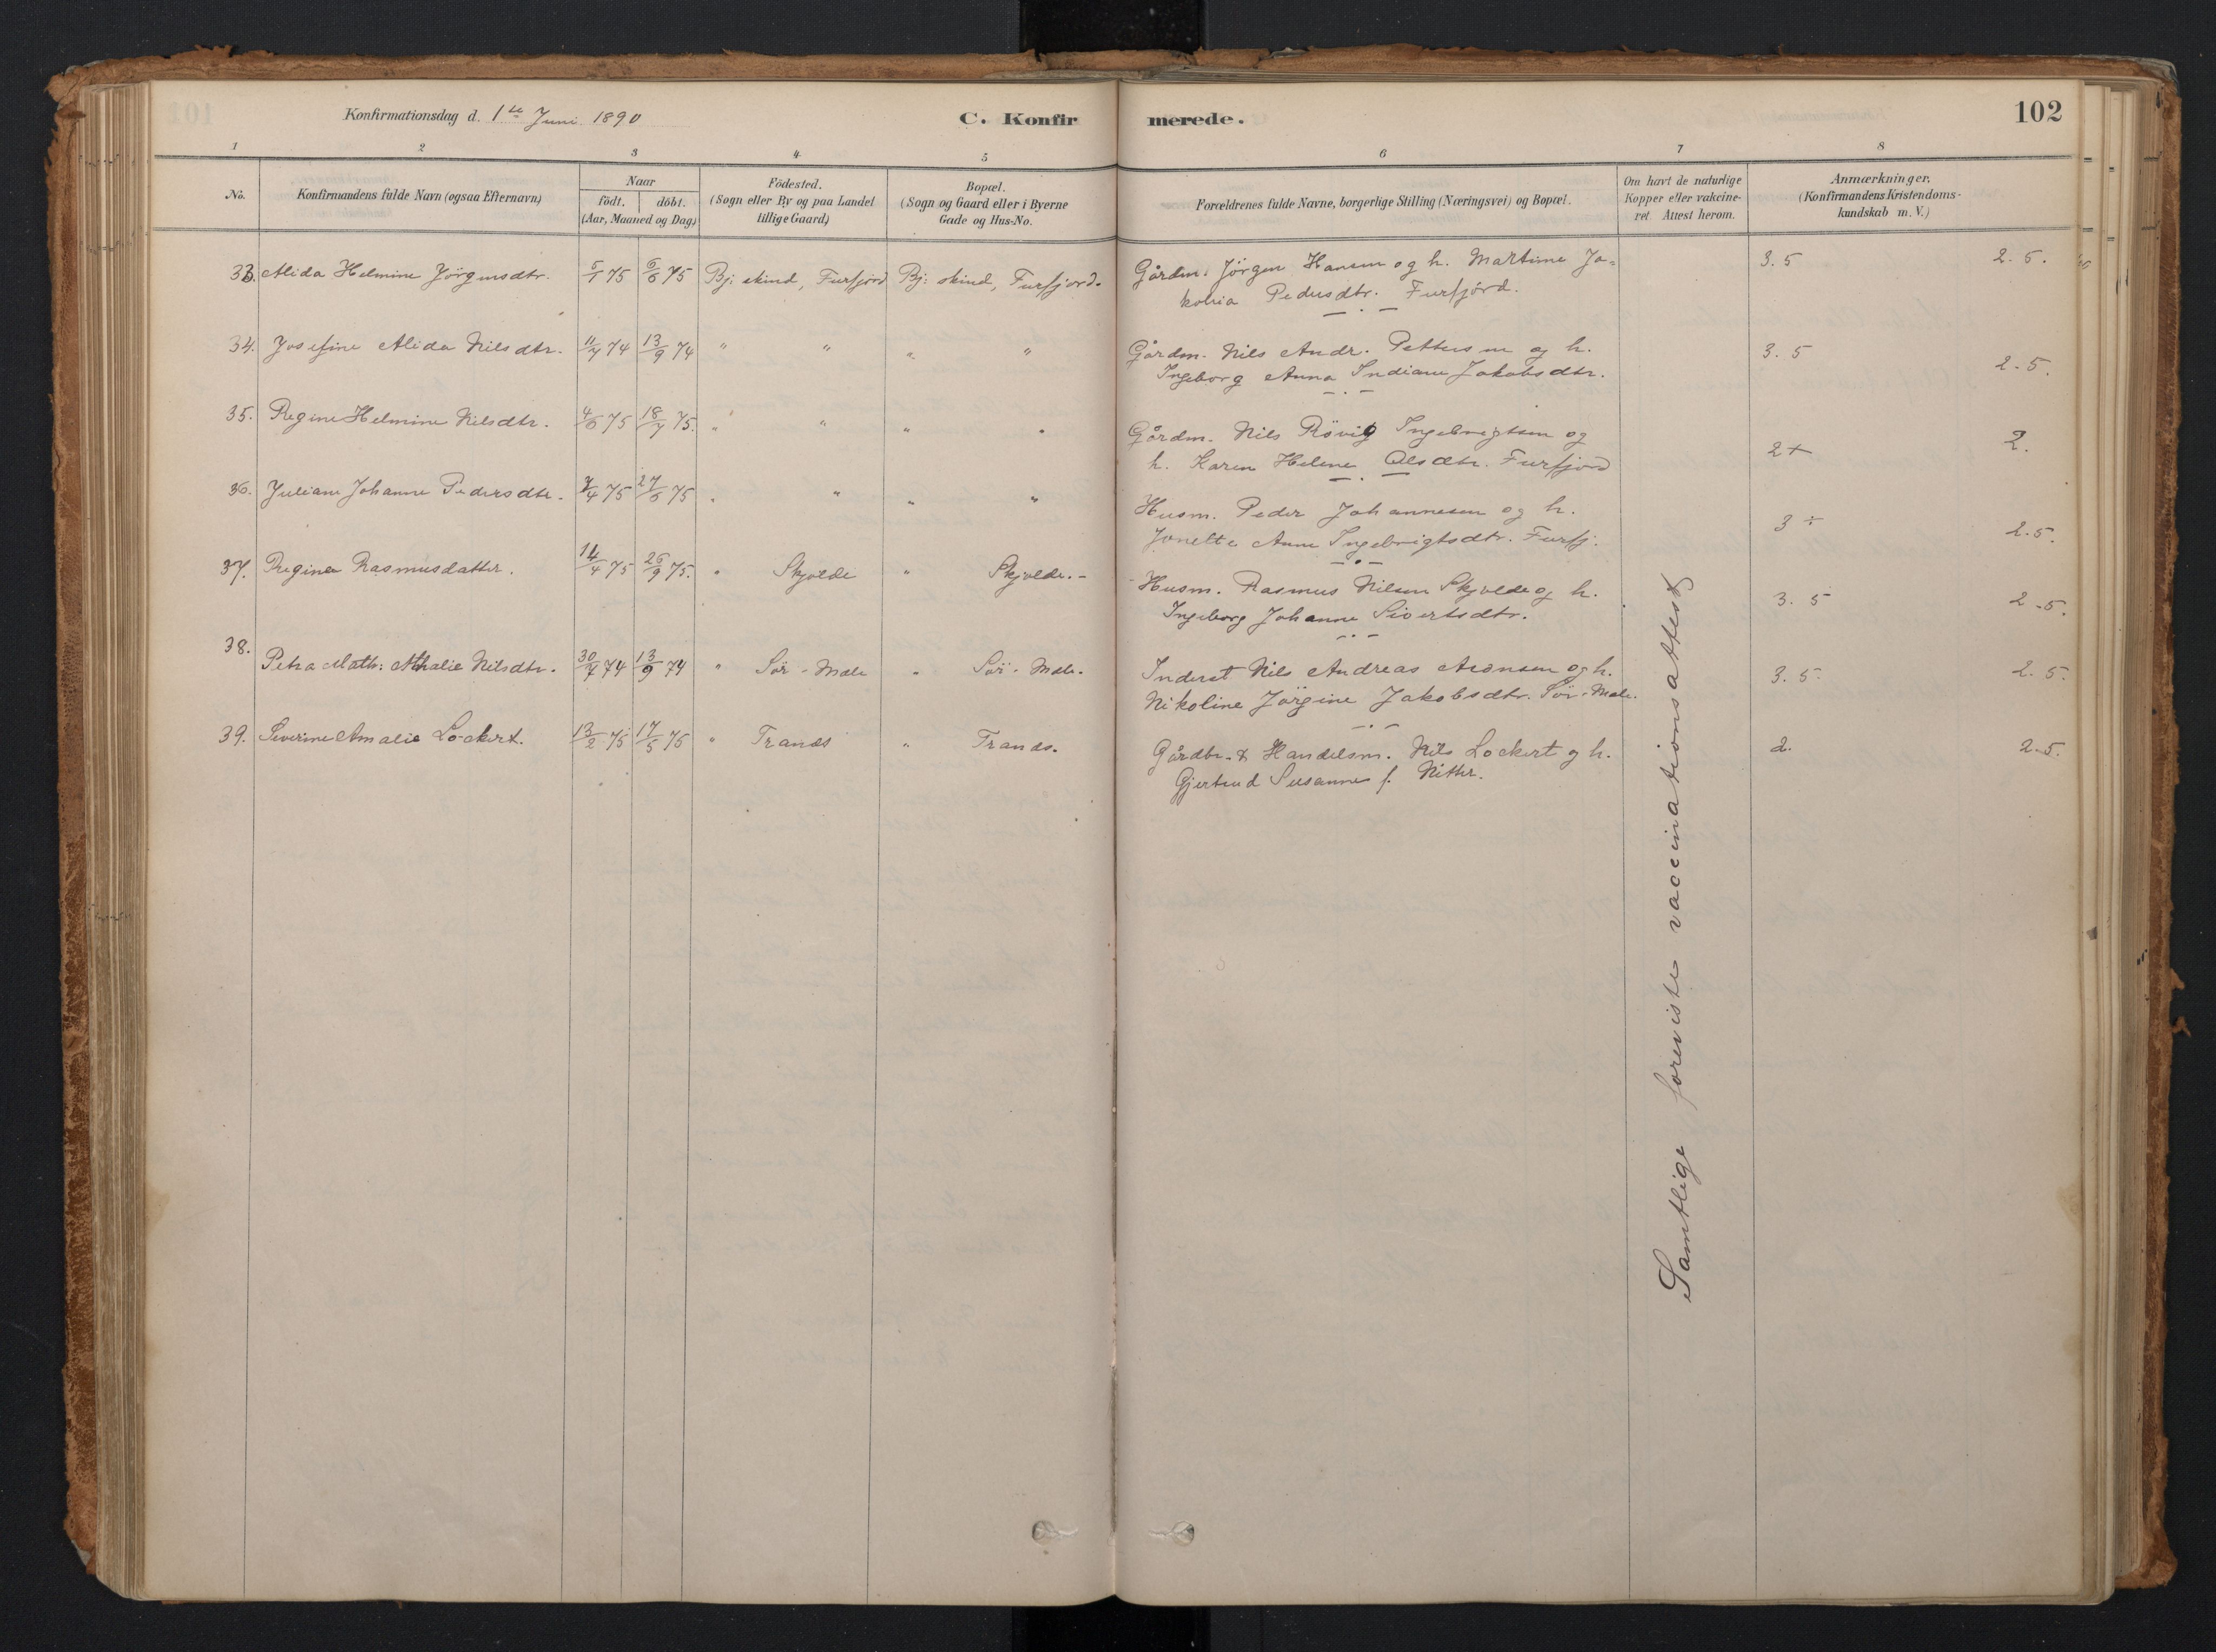 Konfirmationsdag d. 1ste Juni 1890
C. Konfir merede.
102
1 2 3 4 5 6 7 8
No. Konfirmandens fulde Navn (ogsaa Efternavn) Naar födt. döbt. (Aar, Maaned og Dag) Födested. (Sogn eller By og paa Landet tillige Gaard) Bopæl. (Sogn og Gaard eller i Byerne Gade og Hus-No. Forældrenes fulde Navne, borgerlige Stilling (Næringsvei) og Bopæl. Om havt de naturlige Kopper eller vakcineret. Attest herom. Anmærkninger. (Konfirmandens Kristendomskundskab m. V.)
33. Alida Helmine Jörgensdtr. 5/1 75 6/6 75 Bj: skind, Furfjord Bj: skind, Furfjord. Gårdm. Jörgen Hansen og h. Martine Ja= 3.5 2.5.
kobia Pedersdtr. Furfjord.
34. Josefine Alida Nilsdtr. 11/7 74 13/9 74 " " " " Gårdm. Nils Andr. Pettersen og h. 3.5 2.5.
Ingeborg Anna Indiane Jakobsdtr.
35. Regine Helmine Nilsdtr. 4/6 75 18/7 75. " " " " Gårdm. Nils Rövig Ingebrigtsen og 2+ 2.
h. Karen Helene Olsdtr. Furfjord
36. Juliane Johanne Pedersdtr. 3/4 75 27/6 75 " " " " Husm. Peder Johannesen og h. 3÷ 2.5.
Jonette Anne Ingebrigtsdtr. Furfj.
37. Regine Rasmusdatter. 14/4 75 26/9 75. " Skjolde " Skjolde.- Husm. Rasmus Nilsen Skjolde og h. 3.5 2.5.
Ingeborg Johanne Sivertsdtr.
38. Petra Math: Athalie Nilsdtr. 30/7 74 13/9 74 " Sör-Mele " Sör-Mele. Inderst Nils Andreas Aronsen og h. 3.5. 2.5.
Nikoline Jörgine Jakobsdtr. Sör-Mele.
39. Severine Amalie Lockert. 13/2 75 17/5 75 " Tranås " Tranås. Gårdbr. & Handelsm. Nils Lockert og h. 2. 2.5.
Gjertrud Susanne f. Nitter.
Samtlige foreviste vaccinationsattest